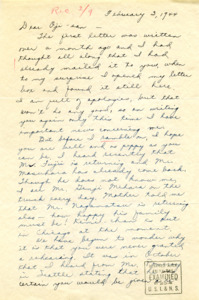 Rec 3/9
February 3, 1944
Dear Oji-san —
The first letter was written
over a month ago and I had
thought all along that I had
already mailed it to you, when
to my surprise I opened my letter
box and found it still here.
I am full of apologies, but that
won't do any good, so am writing
you again only this time I have
important news concerning
But before I ramble on, I hope
you are well and as happy as you
can be. I heard recently that
Mr. is returning and Mr.
has already come back.
Though he does not know me,
I see Mr. on the
truck every day. Mother told me
that Mr. is returning
also — how happy his family
must be! is out
Chicago at the moment.
We have begun to wonder why
it is that you were never granted
a rehearing. It was in October
that I heard from Mr.
Seattle stating that
certain you would be given
EXAMINED